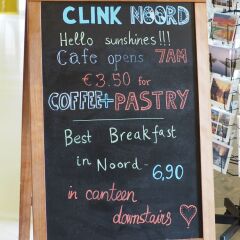 CLINK NOORD
Hello sunshines!!!
Cafe opens 7AM
€3.50 for
COFFEE+PASTRY
Best Breakfast
in Noord - 6,90
in canteen
downstairs